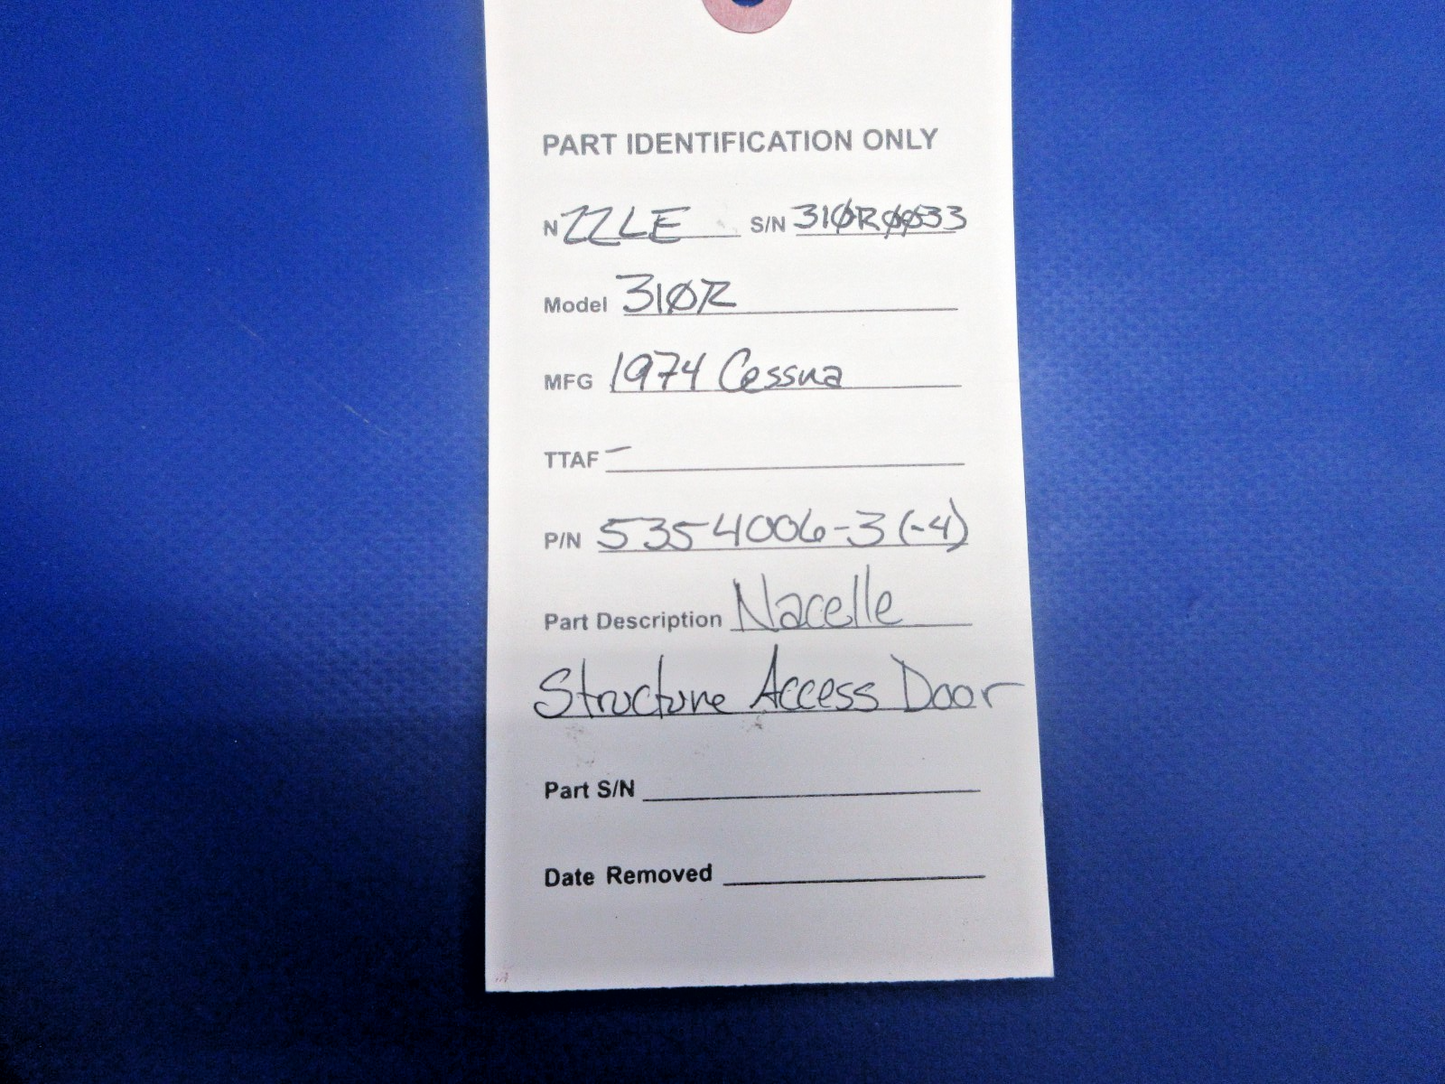 PART IDENTIFICATION ONLY
N 22LE S/N 310R0033
Model 310R
MFG 1974 Cessna
TTAF -
P/N 5354006-3 (-4)
Part Description Nacelle
Structure Access Door
Part S/N
Date Removed